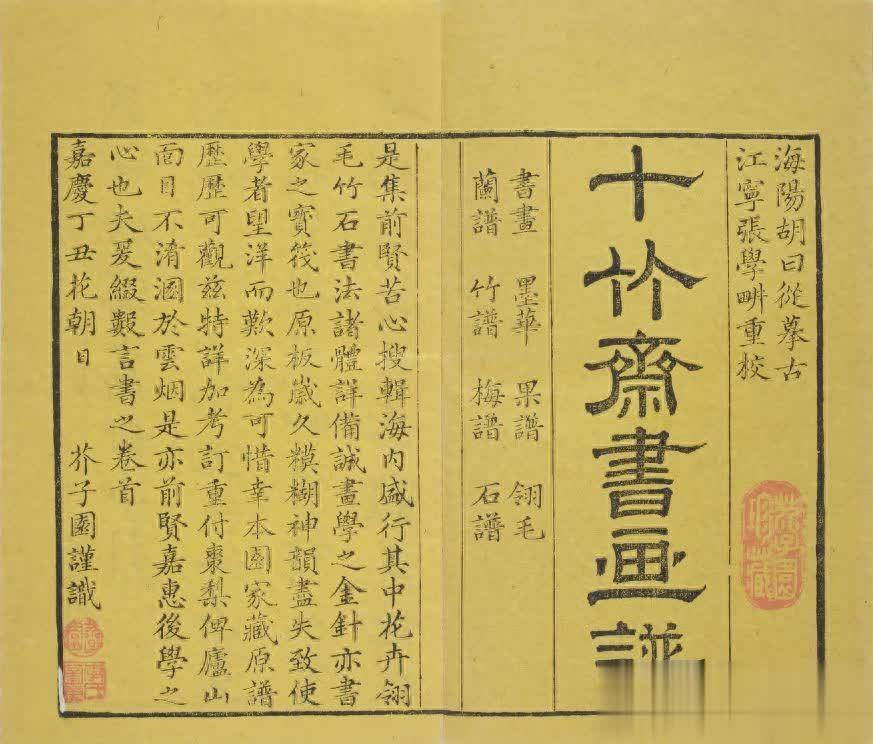 海陽胡曰從摹古
江寧張學畊重校
十竹齋書画譜
書畫 墨華 果譜 翎毛
蘭譜 竹譜 梅譜 石譜
是集前賢苦心搜輯海內盛行其中花卉翎
毛竹石書法諸體詳備誠畫學之金針亦書
家之寶筏也原板歲久糢糊神韻盡失致使
學者望洋而歎深為可惜幸本園家藏原譜
歷歷可觀茲特詳加考訂重付棗梨俾廬山
面目不淆溷於雲烟是亦前賢嘉惠後學之
心也夫爰綴數言書之卷首
嘉慶丁丑花朝日 芥子園謹識